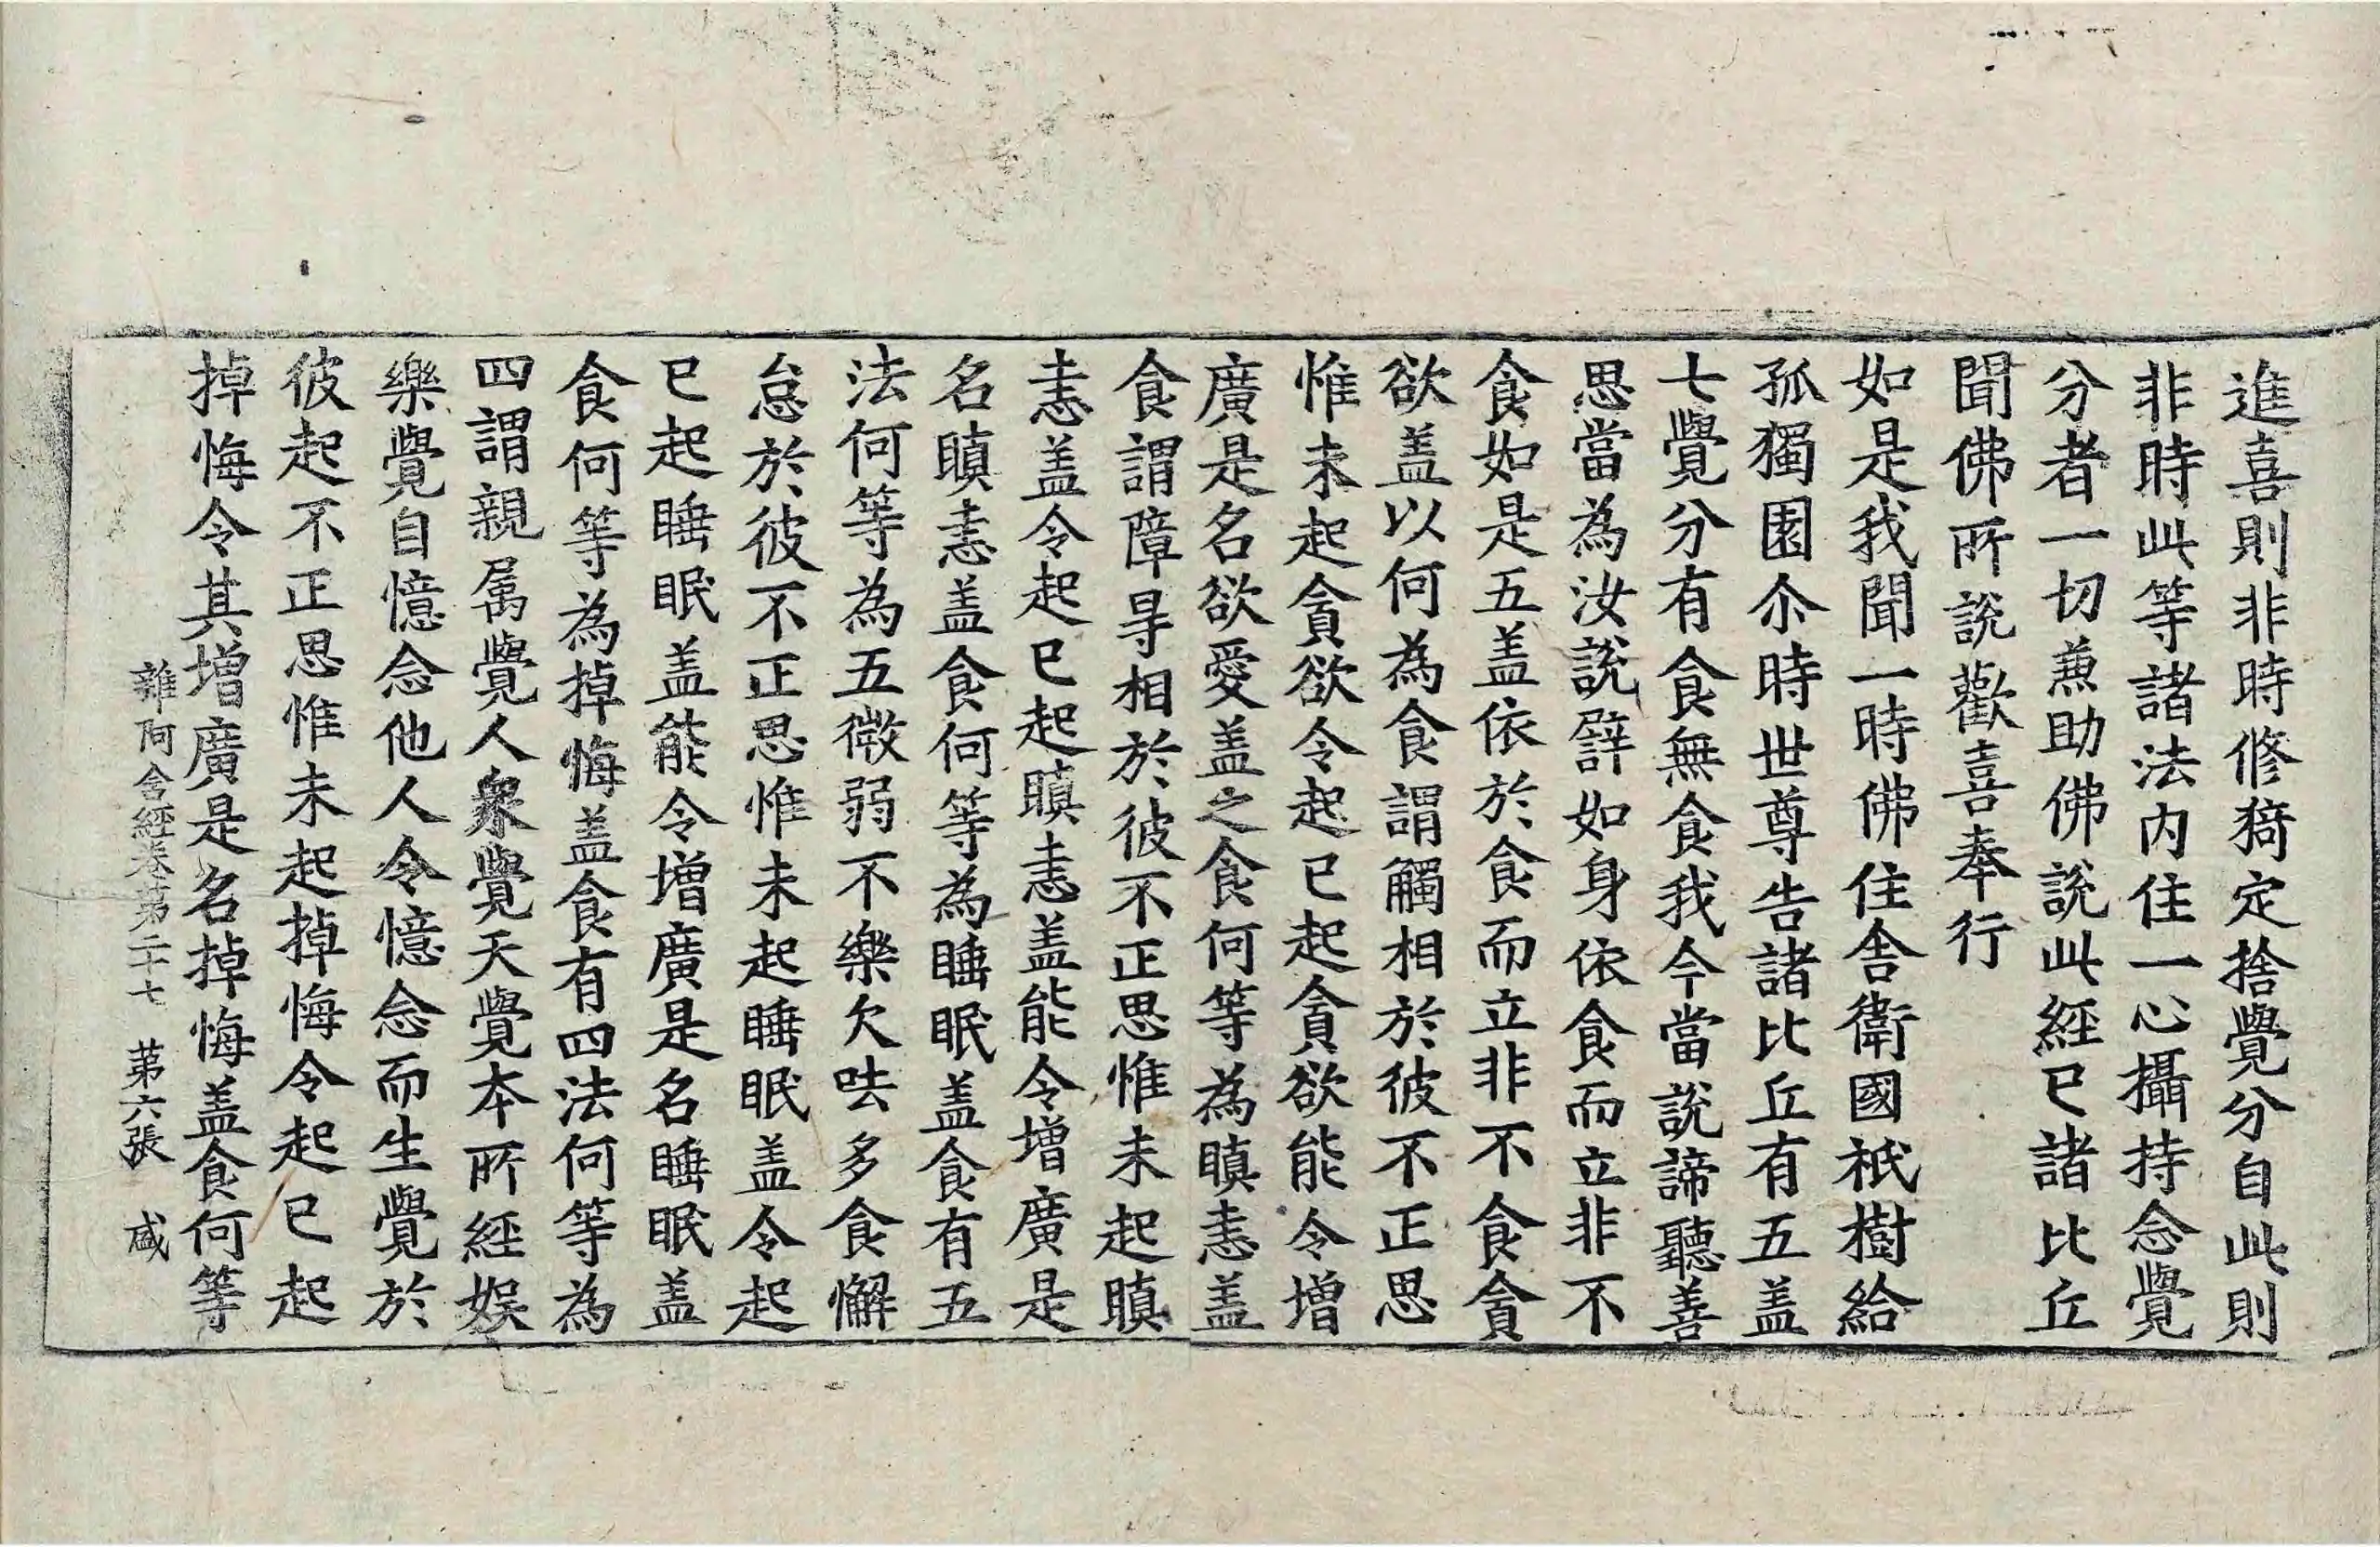 進喜則非時修猗定捨覺分自此則
非時此等諸法内住一心攝持念覺
分者一切兼助佛說此經已諸比丘
聞佛所說歡喜奉行
如是我聞一時佛住舎衛國祇樹給
孤獨園尒時世尊告諸比丘有五盖
七覺分有食無食我今當說諦聽善
思當為汝說辟如身依食而立非不
食如是五盖依於食而立非不食貪
欲盖以何為食謂觸相於彼不正思
惟未起貪欲令起已起貪欲能令增
廣是名欲愛盖之食何等為瞋恚盖
食謂障㝵相於彼不正思惟未起瞋
恚盖令起已起瞋恚盖能令增廣是
名瞋恚盖食何等為睡眠盖食有五
法何等為五微弱不樂欠呿多食懈
怠於彼不正思惟未起睡眠盖令起
已起睡眠盖能令增廣是名睡眠盖
食何等為掉悔盖食有四法何等為
四謂親属覺人衆覺天覺本所經娛
樂覺自憶念他人令憶念而生覺於
彼起不正思惟未起掉悔令起已起
掉悔令其增廣是名掉悔盖食何等
雜阿含經卷第二十七 第六張 咸